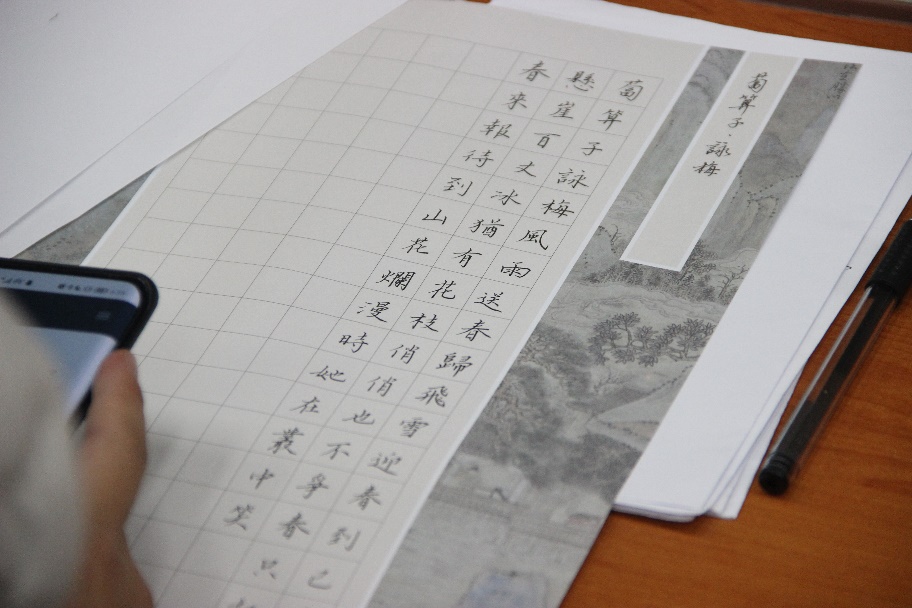 蔔算子·詠梅
蔔算子詠梅風雨送春歸飛雪迎春到已
懸崖百丈冰猶有花枝俏俏也不爭春只
春來報待到山花爛漫時她在叢中笑